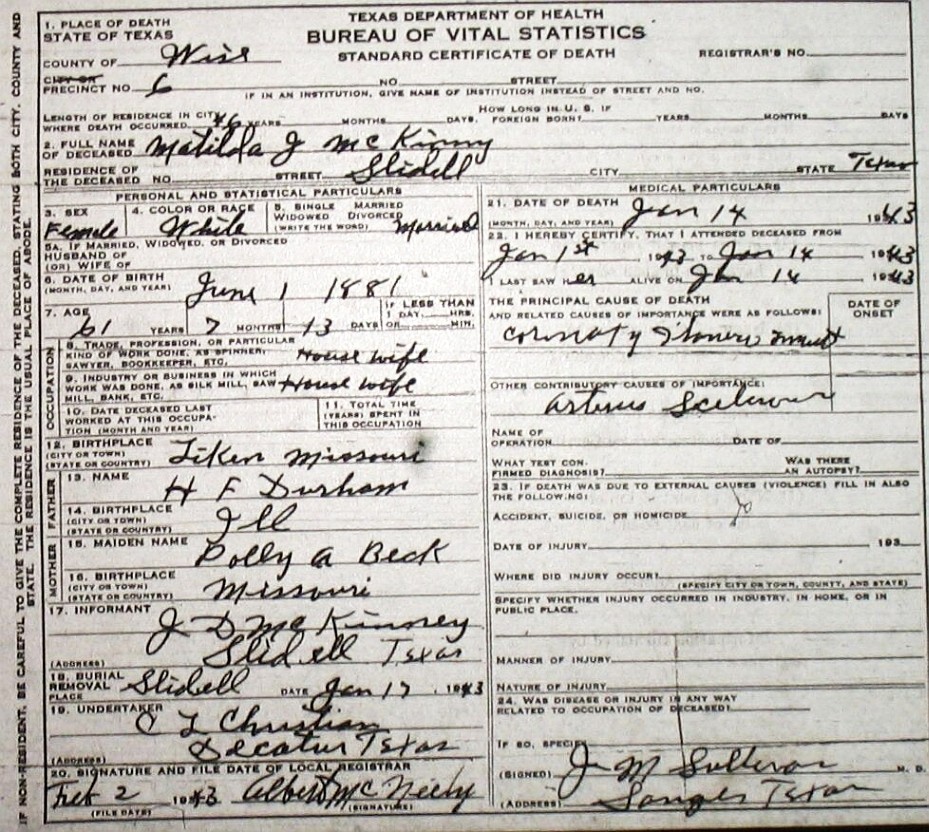 TEXAS DEPARTMENT OF HEALTH
BUREAU OF VITAL STATISTICS
STANDARD CERTIFICATE OF DEATH
REGISTRAR'S NO.
1. PLACE OF DEATH
STATE OF TEXAS
COUNTY OF Wise
CITY OR
PRECINCT NO. 6 NO. STREET
IF IN AN INSTITUTION, GIVE NAME OF INSTITUTION INSTEAD OF STREET AND NO.
LENGTH OF RESIDENCE IN CITY
WHERE DEATH OCCURRED 46 YEARS MONTHS DAYS. HOW LONG IN U. S. IF FOREIGN BORN? YEARS MONTHS DAYS
2. FULL NAME
OF DECEASED Matilda J McKinny
RESIDENCE OF
THE DECEASED NO. STREET Slidell CITY STATE Texas
PERSONAL AND STATISTICAL PARTICULARS
3. SEX
Female
4. COLOR OR RACE
White
5. SINGLE MARRIED
WIDOWED DIVORCED
(WRITE THE WORD) Married
5A. IF MARRIED, WIDOWED, OR DIVORCED
HUSBAND OF
(OR) WIFE OF
6. DATE OF BIRTH
(MONTH, DAY, AND YEAR) June 1 1881
7. AGE
61 YEARS 7 MONTHS 13 DAYS
IF LESS THAN
1 DAY HRS.
OR MIN.
OCCUPATION
8. TRADE, PROFESSION, OR PARTICULAR
KIND OF WORK DONE, AS SPINNER,
SAWYER, BOOKKEEPER, ETC. House wife
9. INDUSTRY OR BUSINESS IN WHICH
WORK WAS DONE, AS SILK MILL, SAW
MILL, BANK, ETC. House wife
10. DATE DECEASED LAST
WORKED AT THIS OCCUPA-
TION (MONTH AND YEAR)
11. TOTAL TIME
(YEARS) SPENT IN
THIS OCCUPATION
12. BIRTHPLACE
(CITY OR TOWN)
(STATE OR COUNTRY) Missouri
FATHER
13. NAME H F Durham
14. BIRTHPLACE
(CITY OR TOWN)
(STATE OR COUNTRY) Ill
MOTHER
15. MAIDEN NAME Polly A Beck
16. BIRTHPLACE
(CITY OR TOWN)
(STATE OR COUNTRY) Missouri
17. INFORMANT
J D McKinney
(ADDRESS) Slidell Texas
18. BURIAL
REMOVAL
PLACE Slidell DATE Jan 17, 1943
19. UNDERTAKER
C L Christian
(ADDRESS) Decatur Texas
20. SIGNATURE AND FILE DATE OF LOCAL REGISTRAR
Feb 2 1943 Albert McNeely
(FILE DATE) (SIGNATURE)
MEDICAL PARTICULARS
21. DATE OF DEATH Jan 14 1943
(MONTH, DAY, AND YEAR)
22. I HEREBY CERTIFY, THAT I ATTENDED DECEASED FROM
Jan 1st 1943 TO Jan 14 1943
I LAST SAW her ALIVE ON Jan 14 1943
THE PRINCIPAL CAUSE OF DEATH
AND RELATED CAUSES OF IMPORTANCE WERE AS FOLLOWS:
DATE OF
ONSET
OTHER CONTRIBUTORY CAUSES OF IMPORTANCE:
NAME OF
OPERATION DATE OF
WHAT TEST CON-
FIRMED DIAGNOSIS? WAS THERE
AN AUTOPSY?
23. IF DEATH WAS DUE TO EXTERNAL CAUSES (VIOLENCE) FILL IN ALSO
THE FOLLOWING:
ACCIDENT, SUICIDE, OR HOMICIDE
DATE OF INJURY 193
WHERE DID INJURY OCCUR?
(SPECIFY CITY OR TOWN, COUNTY, AND STATE)
SPECIFY WHETHER INJURY OCCURRED IN INDUSTRY, IN HOME, OR IN
PUBLIC PLACE.
MANNER OF INJURY
NATURE OF INJURY
24. WAS DISEASE OR INJURY IN ANY WAY
RELATED TO OCCUPATION OF DECEASED?
IF SO, SPECIFY
(SIGNED) J M Sullivan M. D.
(ADDRESS) Sanger Texas
IF NON-RESIDENT, BE CAREFUL TO GIVE THE COMPLETE RESIDENCE OF THE DECEASED, STATING BOTH CITY, COUNTY AND
STATE. THE RESIDENCE IS THE USUAL PLACE OF ABODE.